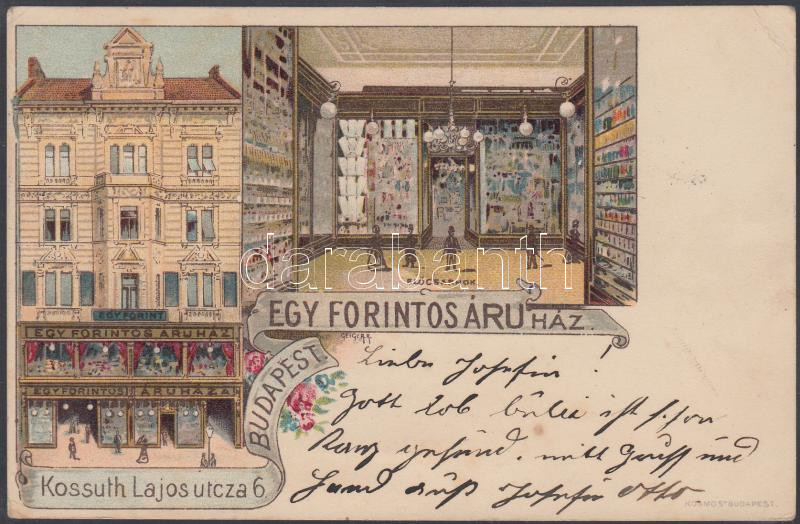 EGY FORINT
EGY FORINTOS ÁRUHÁZ
EGY FORINTOS ÁRUHÁZA
Kossuth Lajos utcza 6.
BUDAPEST
ELŐCSARNOK
EGY FORINTOS ÁRUHÁZ.
GEIGER R.
darabanth
Liebe Josefin!
Gott lob ist schon
Ganz gesund. mitt Gruss und
Josefin Otto
KOSMOS BUDAPEST.